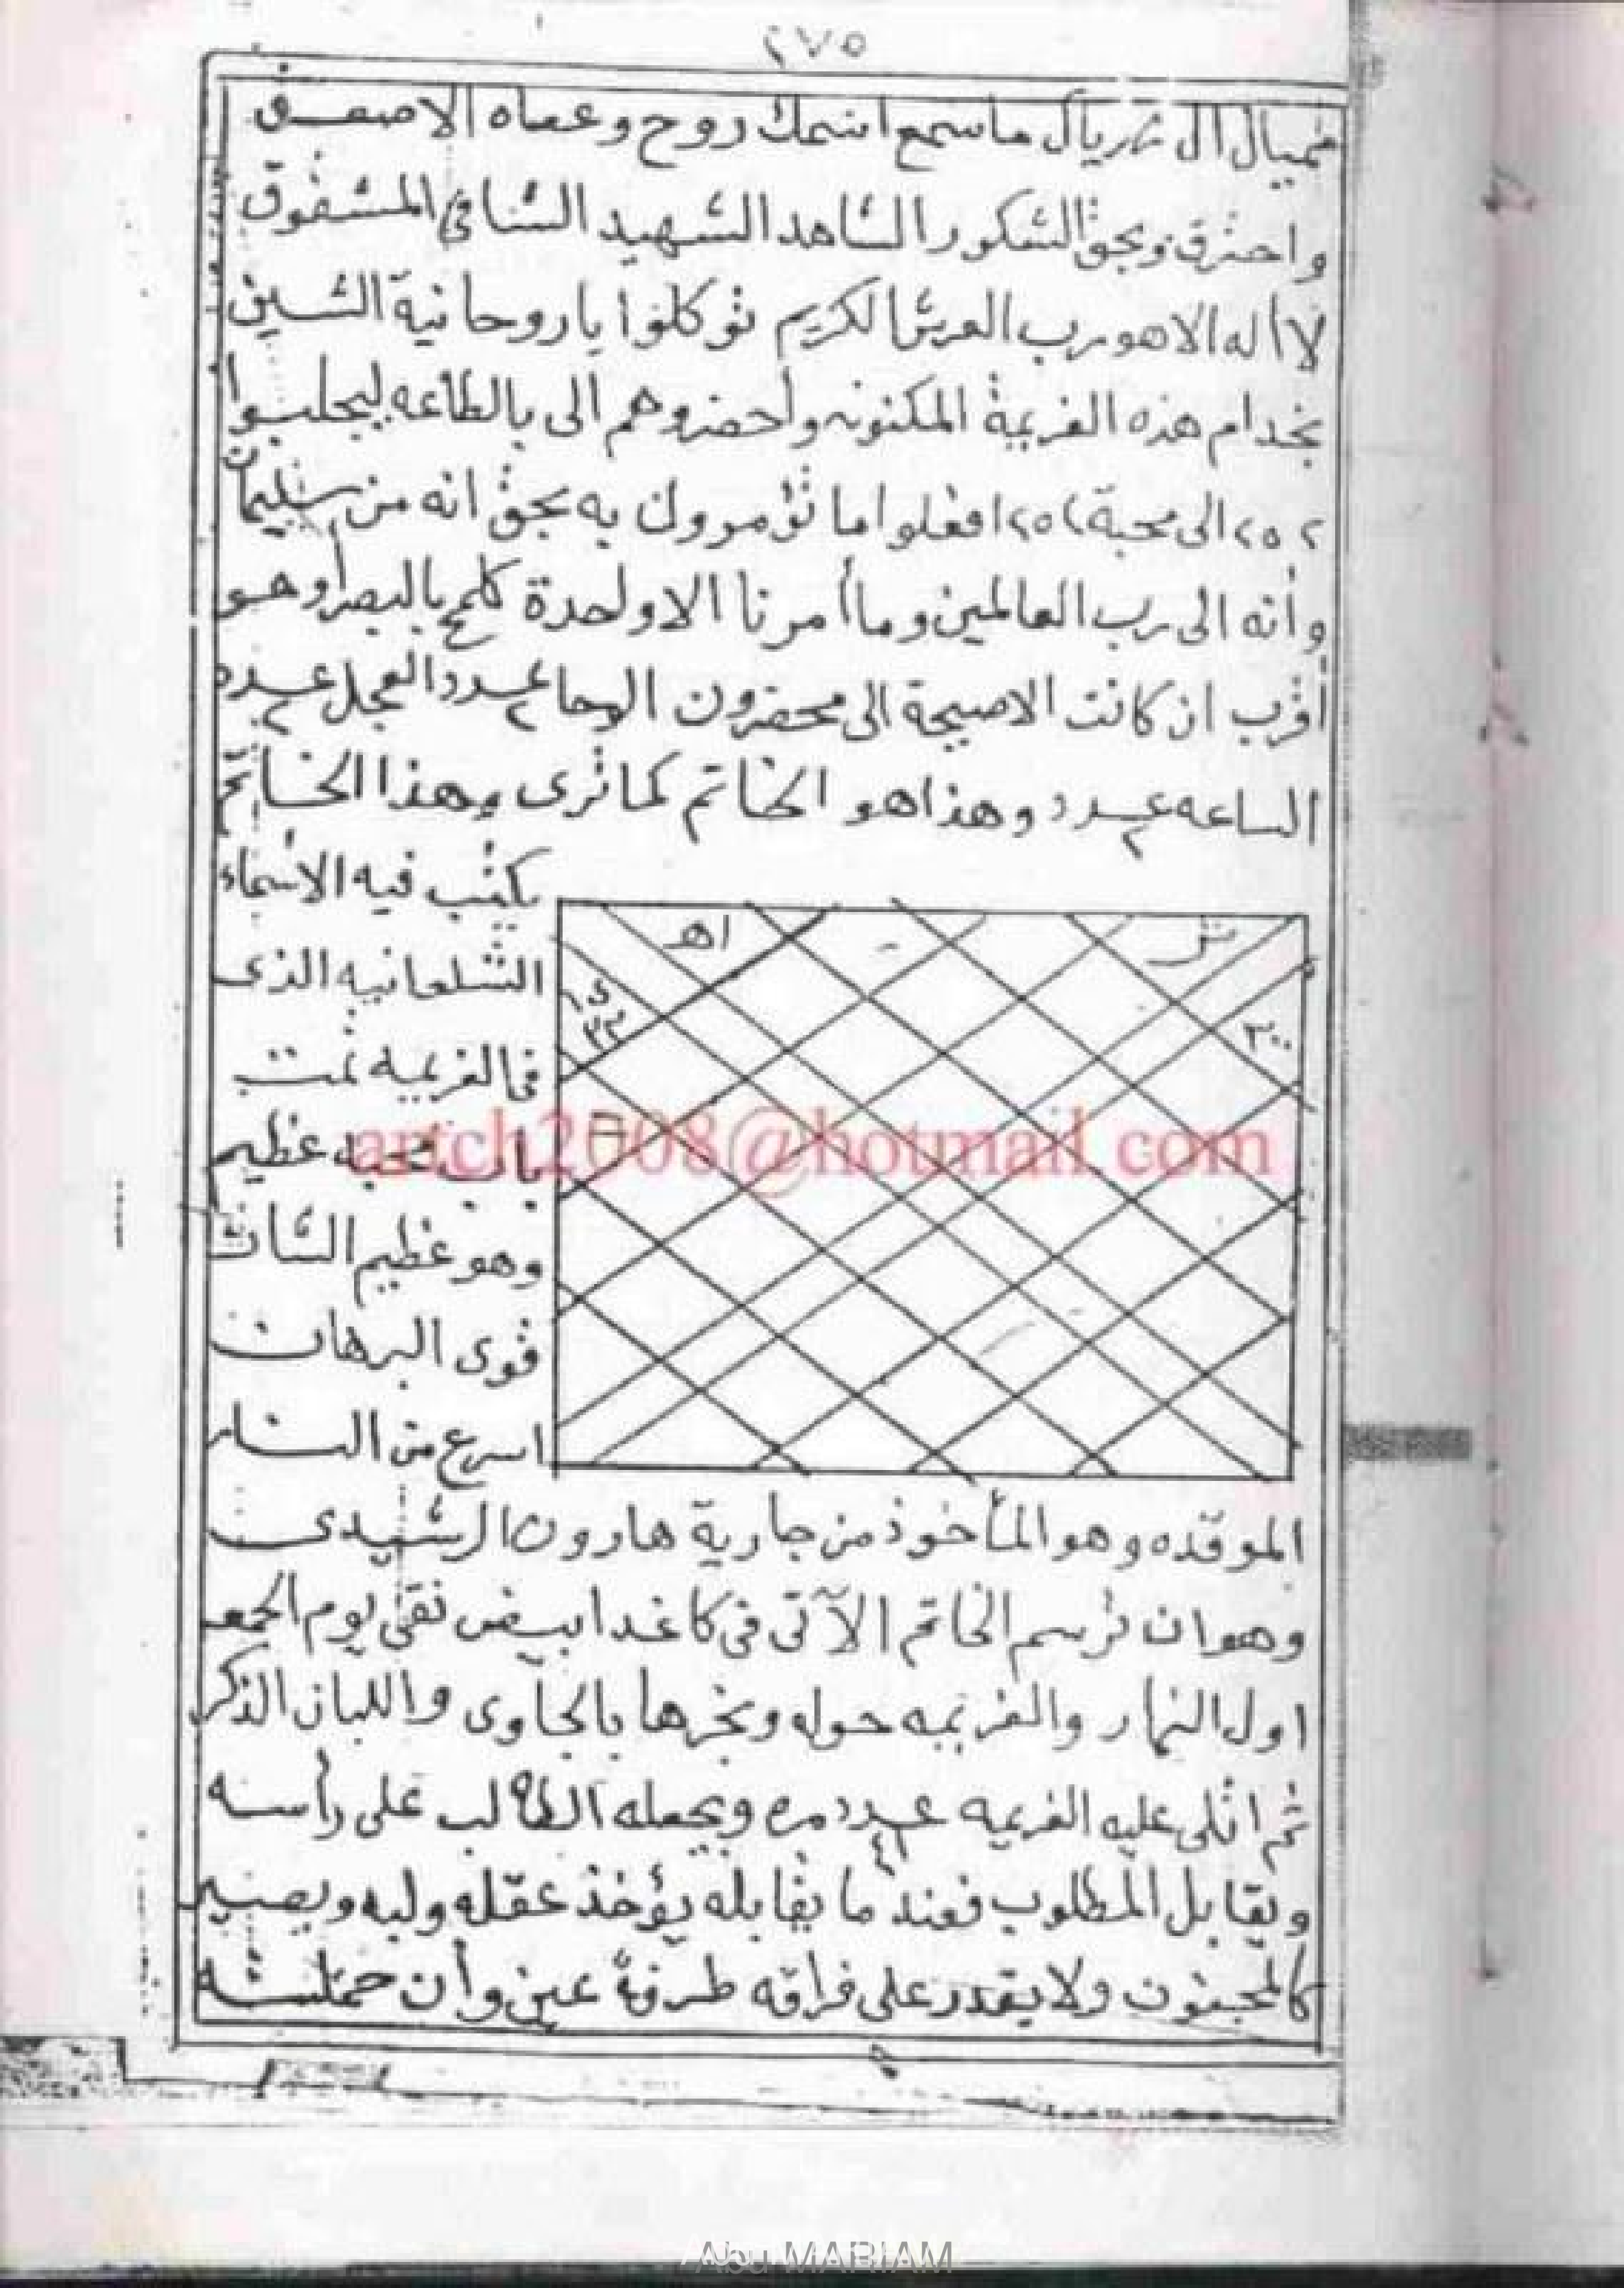 ٢٧٥
ال ما سمع اسمك روح وعصاه الا صعق
واحترق وبحق الشكور الشاهد الشهيد الشافى
لا اله الا هو رب العرش الكريم توكلوا يا روحانية الشين
بخدام هذه العزيمة المكنونه وأحضروهم الى بالطاعه ليجلبوا
٢٥٢ الى محبة ٢٥٢ افعلوا ما تؤمرون به بحق انه من سليمان
وأنه الى رب العالمين وما أمرنا الا واحدة كلمح بالبصر أو هو
أقرب ان كانت الا صيحة الى محضرون الوحا عدد ٢ العجل عدد ٢
الساعه عدد ٢ وهذا هو الخاتم كما ترى وهذا الخاتم
يكتب فيه الأسماء
الذى
العزيمه تمت
باب محبه عظيم
وهو عظيم الشان
قوى البرهان
اسرع من النار
اهـ
٣٠٠
artch2008@hotmail.com
الموقده وهو المأخوذ من جارية هارون الرشيدى
وهو ان ترسم الخاتم الآتى فى كاغد ابيض نقى يوم الجمعه
اول النهار والعزيمه حوله وبخرها بالجاوى واللبان الذكر
ثم اتلى عليه العزيمه عدد مره ويجعله الطالب على رأسه
ويقابل المطلوب فعند ما يقابله يؤخذ عقله ولبه ويصير
كالمجنون ولا يقدر على فراقه طرفة عين وأن حملته
Abu MARIAM